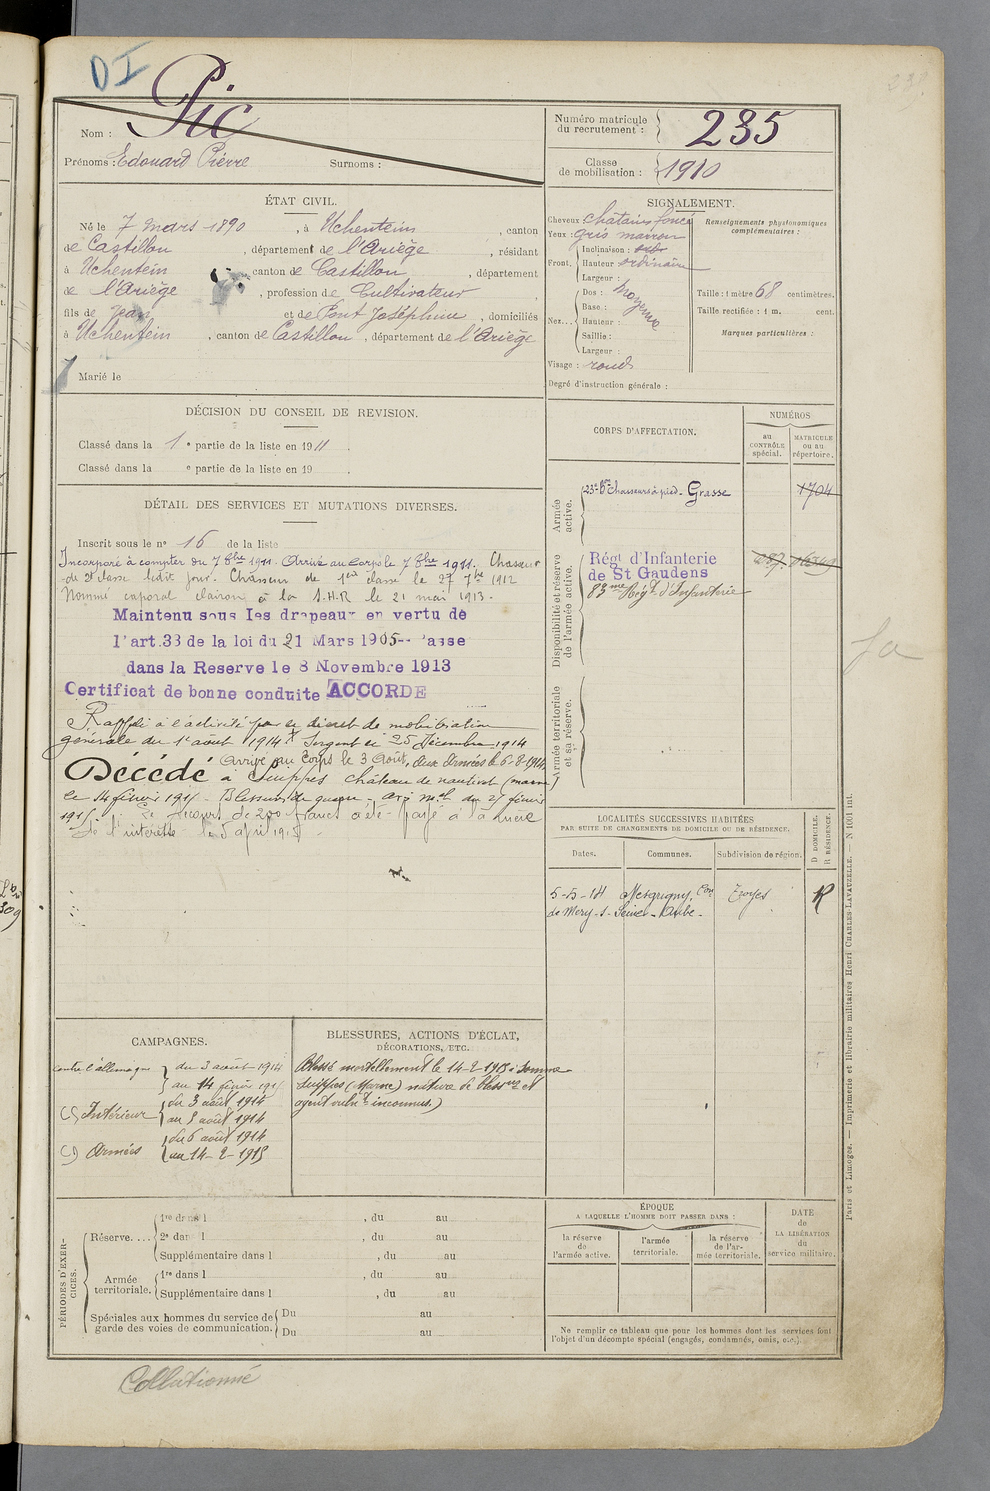 DI
Nom : Pic
Prénoms : Edouard Pierre Surnoms :
Numéro matricule du recrutement : 235
Classe de mobilisation : 1910
ÉTAT CIVIL.
Né le 7 mars 1890, à Uchentein, canton
de Castillon, département de l'Ariège, résidant
à Uchentein canton de Castillon, département
de l'Ariège, profession de Cultivateur
fils de Jean et de Pont Joséphine, domiciliés
à Uchentein, canton de Castillon, département de l'Ariège
Marié le
SIGNALEMENT.
Cheveux châtain foncé
Yeux : gris marron
Front. Inclinaison :
Hauteur ordinaire
Largeur :
Nez... Dos : moyenne
Base :
Hauteur :
Saillie :
Largeur :
Visage : rond
Renseignements physionomiques complémentaires :
Taille : 1 mètre 68 centimètres.
Taille rectifiée : 1 m. cent.
Marques particulières :
Degré d'instruction générale :
DÉCISION DU CONSEIL DE REVISION.
Classé dans la 1 e partie de la liste en 1911.
Classé dans la e partie de la liste en 19 .
DÉTAIL DES SERVICES ET MUTATIONS DIVERSES.
Inscrit sous le n° 16 de la liste
Incorporé à compter du 7 8bre 1911. Arrivé au Corps le 7 8bre 1911. Chasseur
de 2e classe ledit jour. Chasseur de 1ère classe le 27 7bre 1912
Nommé caporal clairon à la S.H.R le 21 mai 1913.
Maintenu sous les drapeaux en vertu de
l'art.33 de la loi du 21 Mars 1905 - Passe
dans la Reserve le 8 Novembre 1913
Certificat de bonne conduite ACCORDE
Rappelé à l'activité par le décret de mobilisation
générale du 1er août 1914 Sergent le 25 Décembre 1914
Arrivé au Corps le 3 Août, aux Armées le 6-8-1914
Décédé à Suippes château de (marne
le 14 février 1915 - Blessures de guerre - avis mel du 27 février
1915. Le secours de 200 francs a été payé à la mère
de l'intéressé
CORPS D'AFFECTATION.
NUMÉROS
au CONTRÔLE spécial.
MATRICULE ou au répertoire.
Armée active.
23e Bon Chasseurs à pied - Grasse 1704
Disponibilité et réserve de l'armée active.
Régt d'Infanterie
de St Gaudens
83me Régt d'Infanterie
Armée territoriale et sa réserve.
fa
LOCALITÉS SUCCESSIVES HABITÉES
PAR SUITE DE CHANGEMENTS DE DOMICILE OU DE RÉSIDENCE.
Dates. Communes. Subdivision de région. D DOMICILE. R RÉSIDENCE.
5-5-14 Mesgrigny, Con Troyes R
de Mery-s-Seine - Aube -
CAMPAGNES.
Contre l'allemagne du 3 août 1914
au 14 février 1915
C) Intérieur du 3 août 1914
au 5 août 1914
C) Armées du 6 août 1914
au 14-2-1915
BLESSURES, ACTIONS D'ÉCLAT,
DÉCORATIONS, ETC.
Blessé mortellement le 14-2-1915 à Somme
Suippes (Marne) nature de bless et
agent vulnt inconnus.)
PÉRIODES D'EXERCICES.
Réserve.... 1re dans l , du au
2e dans l , du au
Supplémentaire dans l , du au
Armée territoriale. 1re dans l , du au
Supplémentaire dans l , du au
Spéciales aux hommes du service de garde des voies de communication. Du au
Du au
ÉPOQUE
A LAQUELLE L'HOMME DOIT PASSER DANS :
la réserve de l'armée active.
l'armée territoriale.
la réserve de l'armée territoriale.
DATE de LA LIBÉRATION du service militaire.
Ne remplir ce tableau que pour les hommes dont les services font
l'objet d'un décompte spécial (engagés, condamnés, omis, etc.).
Paris et Limoges. — Imprimerie et librairie militaires Henri CHARLES-LAVAUZELLE. — N 1001 int.
Collationné